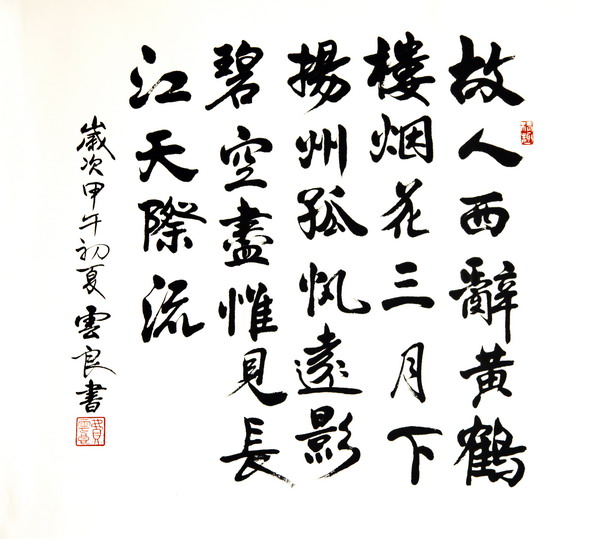 故人西辭黃鶴
樓烟花三月下
揚州孤帆遠影
碧空盡惟見長
江天際流
歲次甲午初夏雲良書